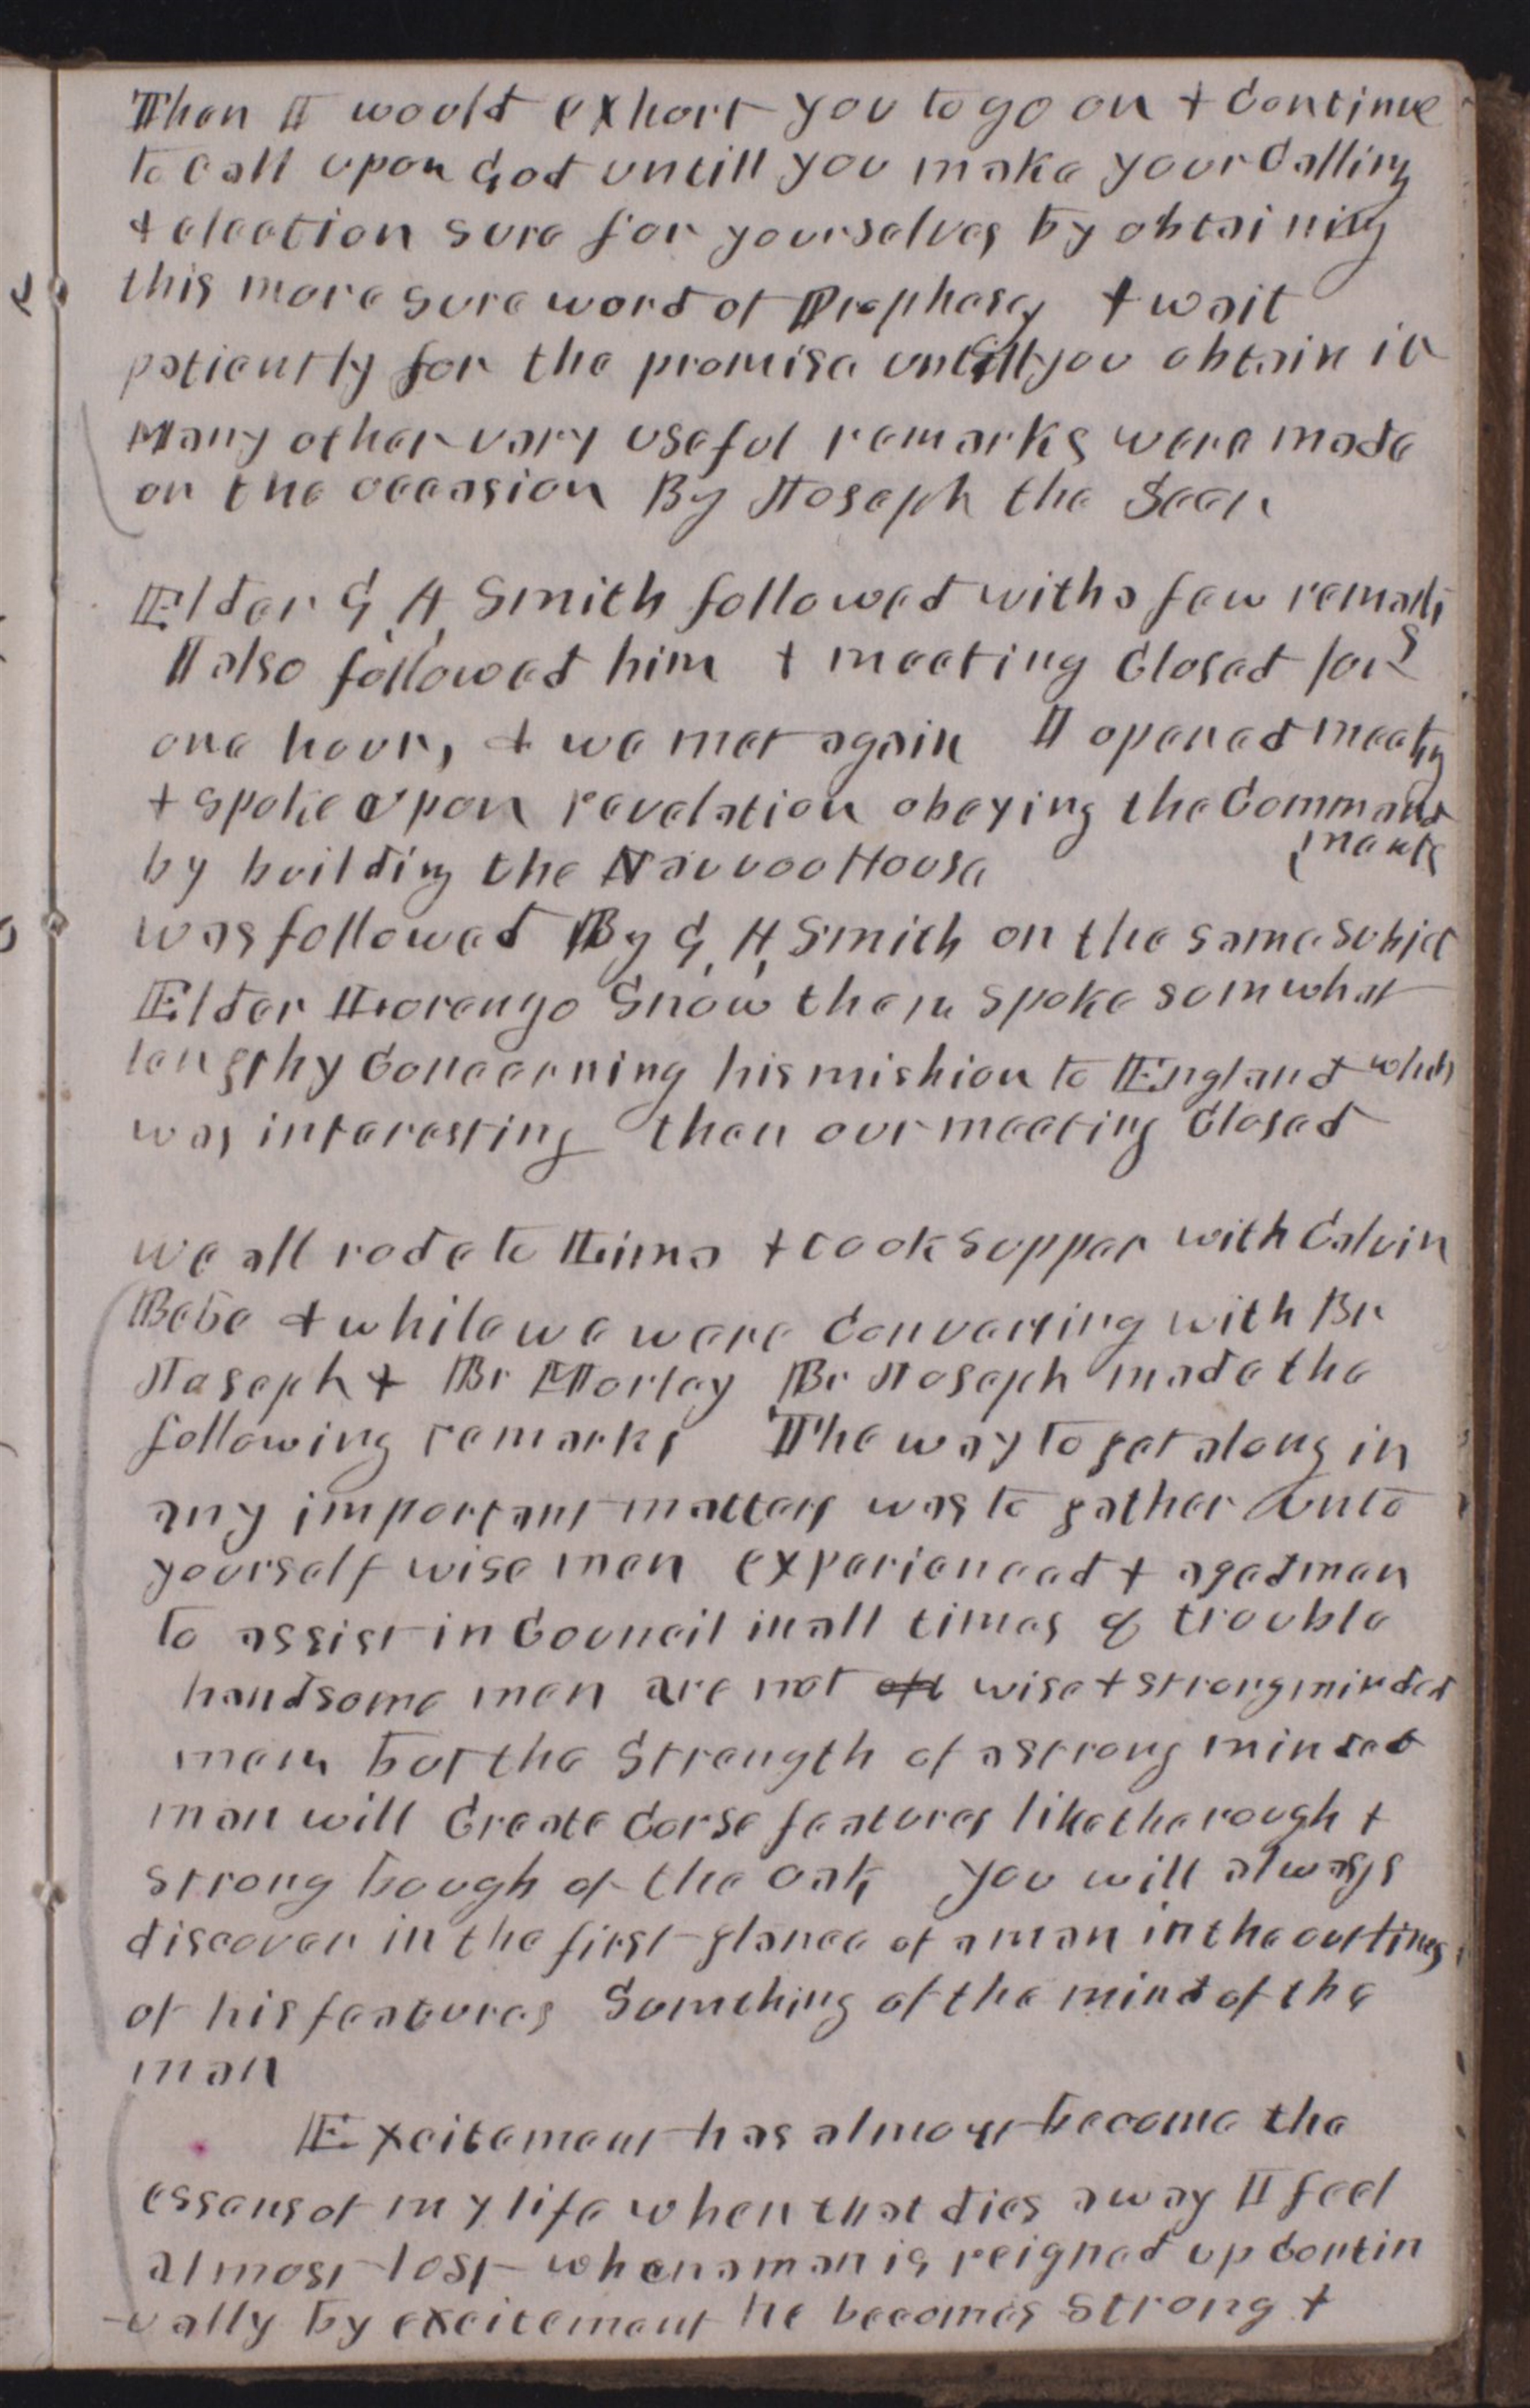 Then I would exhort you to go on & continue
to call upon God untill you make your calling
& election sure for yourselves by obtaining
this more sure word of Prophesey & wait
patiently for the promise untill you obtain it
Many other vary useful remarks were made
on the occasion By Joseph the Seer
Elder G. A. Smith followed with a few remarks
I also followed him & meeting Closed for
one hour, & we met again I opened meeting
& spoke upon revelation obeying the Command
ments
by building the Nauvoo House
was followed By G. A. Smith on the same subject
Elder Lorenzo Snow then spoke somwhat
lengthy Concerning his mishion to England which
was interesting then our meeting Closed
we all rode to Lima & took supper with Calvin
Bebe & while we were Conversing with Br
Joseph & Br Morley Br Joseph made the
following remarks The way to get along in
any important matters was to gather unto
yourself wise men experienced & aged men
to assist in Council in all times of trouble
handsome men are not apt wise & strong minded
men but the Strength of a strong minded
man will Create Corse features like the rough &
strong bough of the oak you will always
discover in the first glance of a man in the outlines
of his features Somthing of the mind of the
man
Excitement has almost become the
essens of my life when that dies away I feel
almost lost when a man is reigned up contin
-ually by excitement he becomes strong &